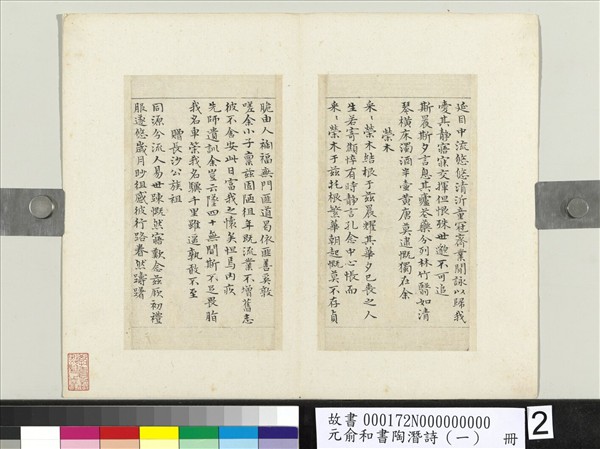 延目中流悠悠清沂童冠齊業閒詠以歸我
愛其靜寤寐交揮但恨殊世邈不可追
斯晨斯夕言息其廬花藥分列林竹翳如清
琴橫床濁酒半壺黃唐莫逮慨獨在余
榮木
采〻榮木結根于茲晨耀其華夕已喪之人
生若寄顦悴有時靜言孔念中心悵而
采〻榮木于茲托根繁華朝起慨暮不存貞
脆由人禍福無門匪道曷依匪善奚敦
嗟余小子稟茲固陋徂年既流業不增舊志
彼不舍安此日富我之懷矣怛焉內疚
先師遺訓余豈云墜四十無聞斯不足畏脂
我名車策我名驥千里雖遙孰敢不至
贈長沙公族祖
同源分流人易世疎慨然寤歎念茲厥初禮
服遂悠歲月眇徂感彼行路眷然躊躇
故書000172N000000000
元俞和書陶潛詩(一) 冊
2